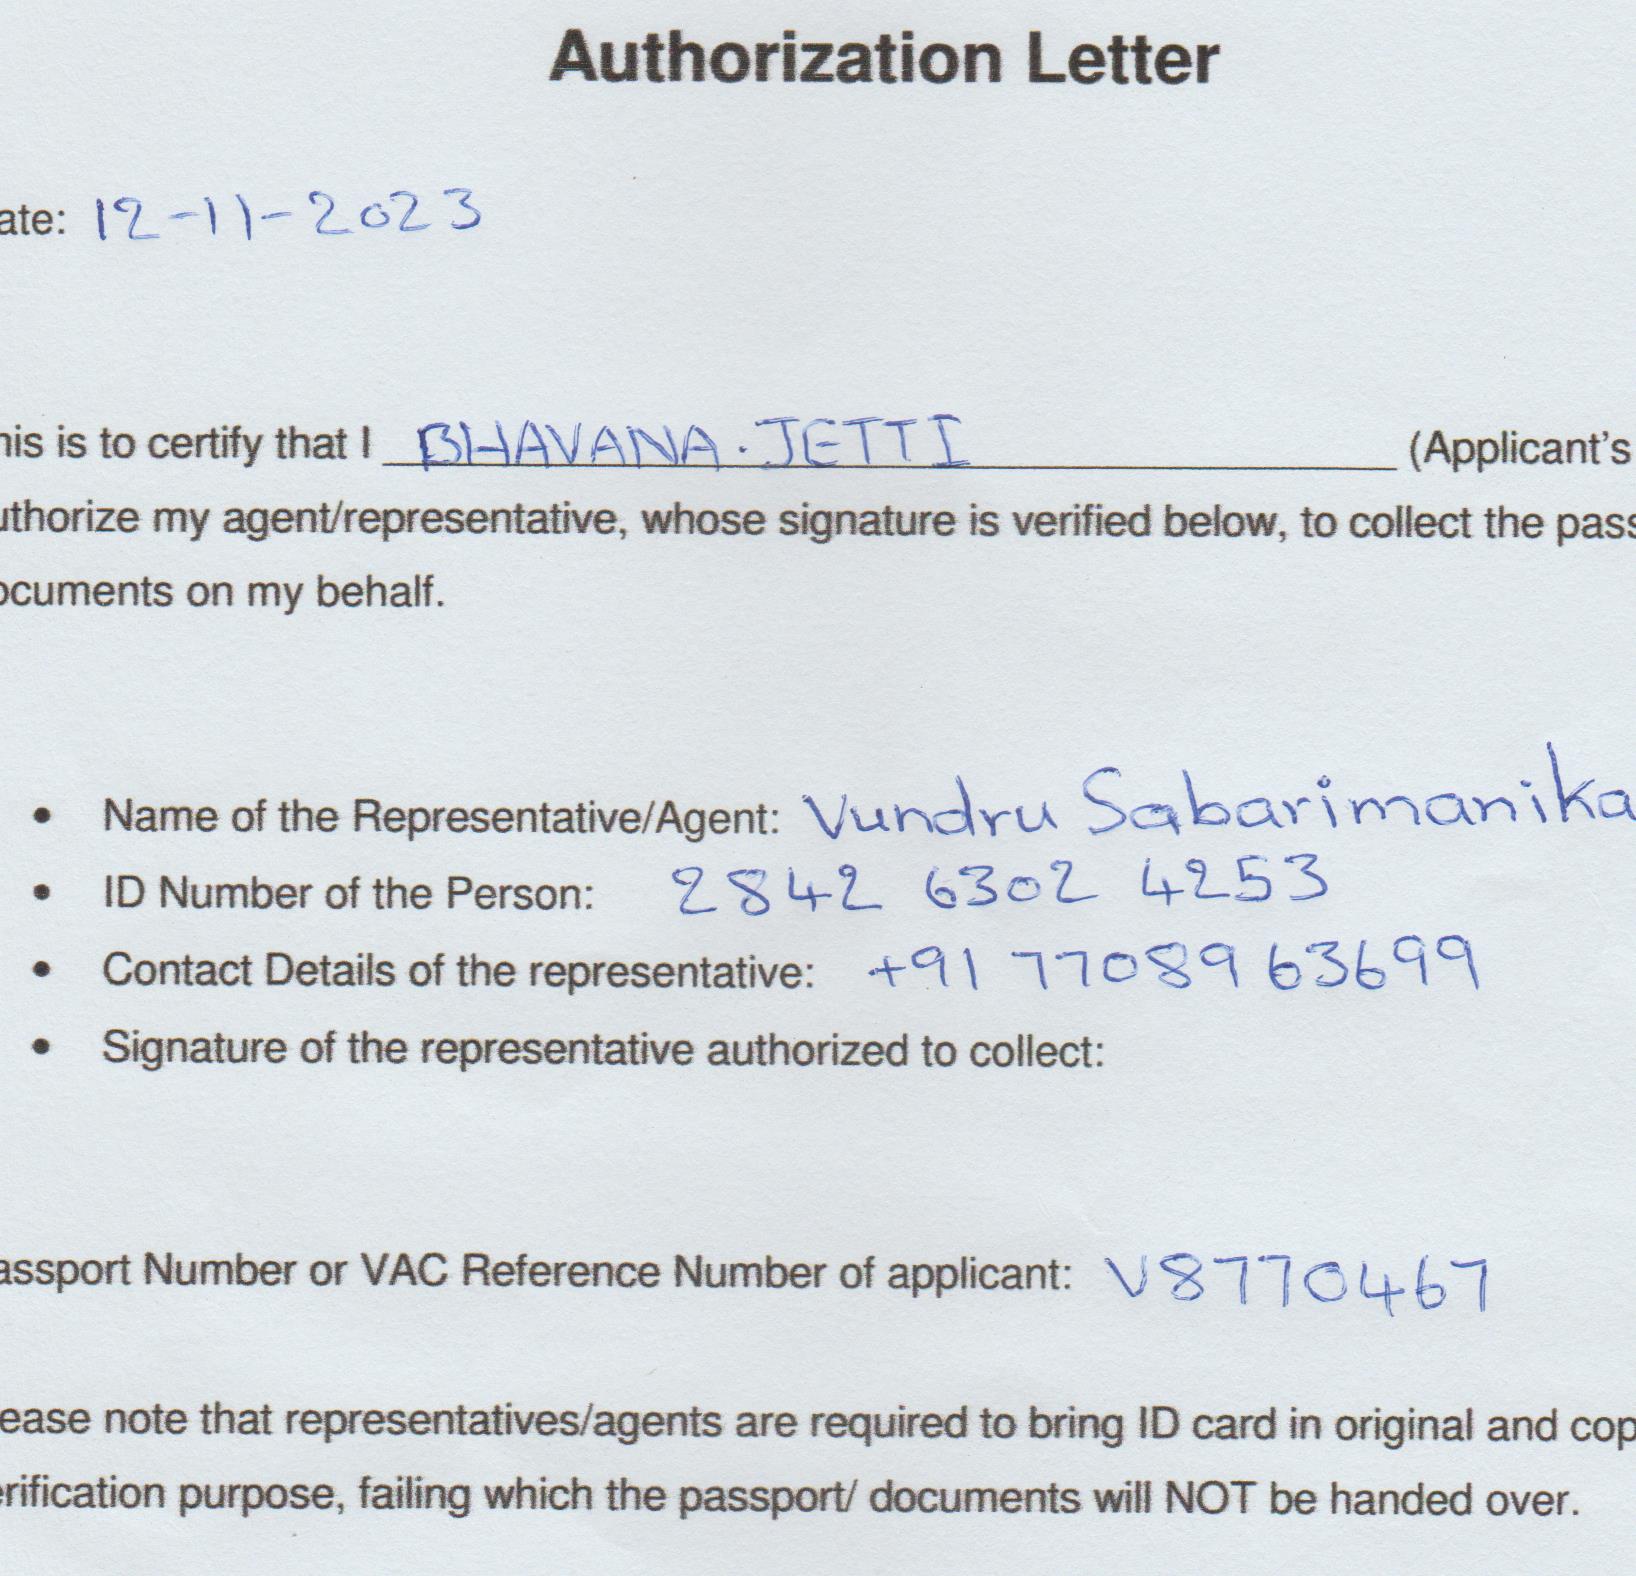 Authorization Letter
ate: 12-11-2023
his is to certify that I BHAVANA.JETTI (Applicant's
uthorize my agent/representative, whose signature is verified below, to collect the pass
ocuments on my behalf.
• Name of the Representative/Agent: Vundru Sabarimanika
• ID Number of the Person: 2842 6302 4253
• Contact Details of the representative: +91 7708963699
• Signature of the representative authorized to collect:
assport Number or VAC Reference Number of applicant: V8770467
ease note that representatives/agents are required to bring ID card in original and cop
erification purpose, failing which the passport/ documents will NOT be handed over.